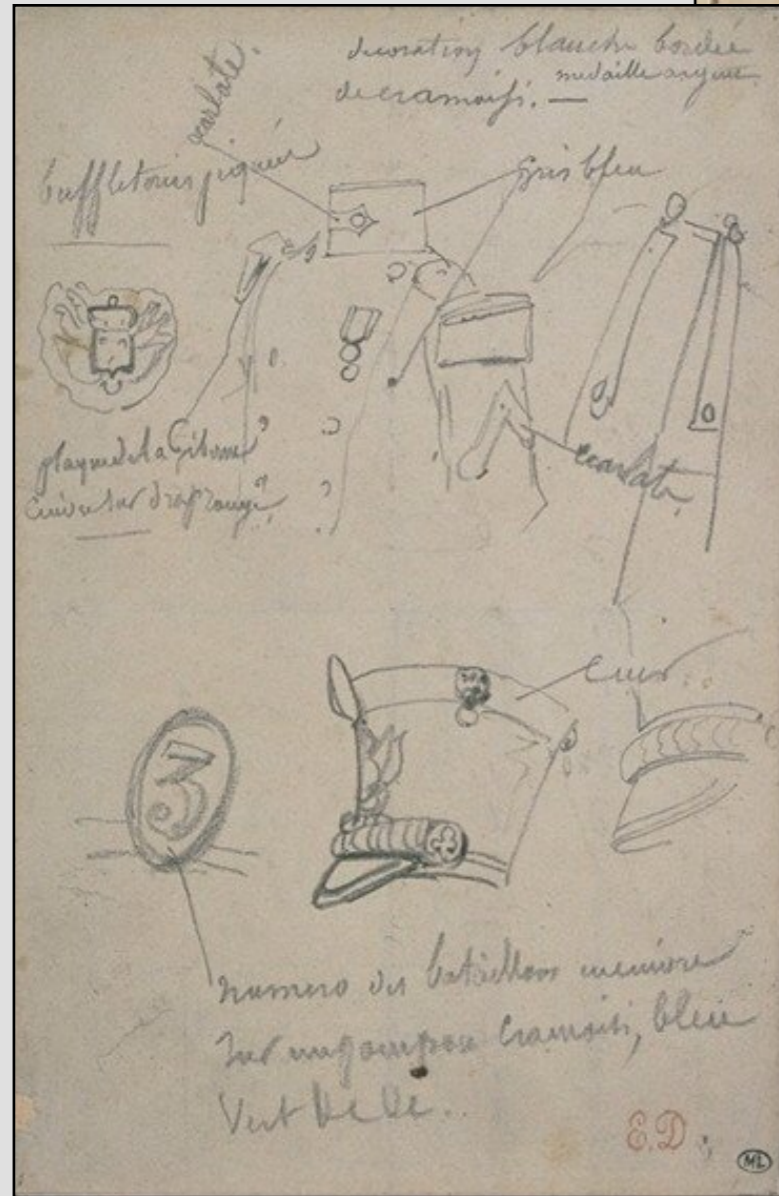 decoration blanche bordée
de cramoisi. — medaille argent
ecarlate.
buffleteries piquées
gris bleu
plaque de la Giberne
cuivre sur drap rouge
ecarlate
cuir
3
numero du bataillon en cuivre
sur un pompon cramoisi, bleu
Vert
E.D.
ML